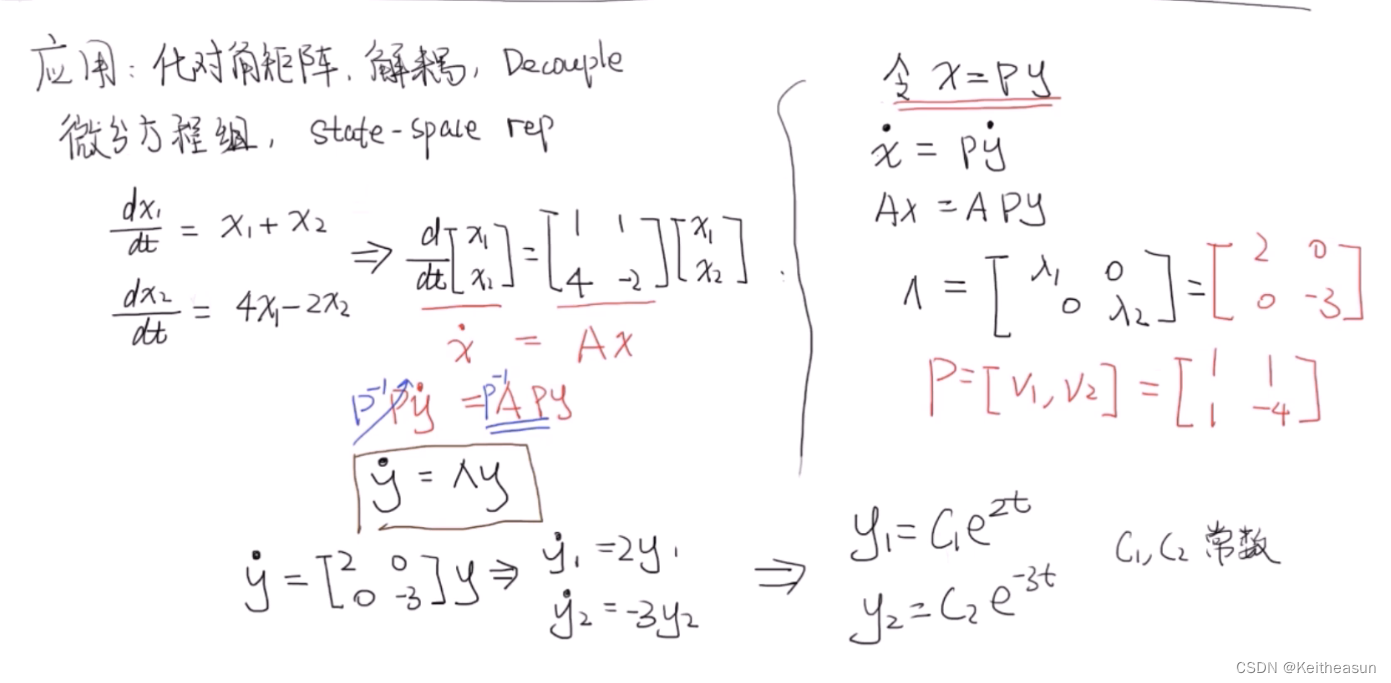 应用: 化对角矩阵, 解耦, Decouple
微分方程组, state-space rep
dx₁/dt = x₁ + x₂
dx₂/dt = 4x₁ - 2x₂
⇒ d/dt [x₁; x₂] = [1 1; 4 -2] [x₁; x₂]
ẋ = Ax
P⁻¹Pẏ = P⁻¹APy
ẏ = Λy
令 x = Py
ẋ = Pẏ
Ax = APy
Λ = [λ₁ 0; 0 λ₂] = [2 0; 0 -3]
P = [v₁, v₂] = [1 1; 1 -4]
ẏ = [2 0; 0 -3] y ⇒ ẏ₁ = 2y₁
ẏ₂ = -3y₂
⇒ y₁ = C₁e^{2t}
y₂ = C₂e^{-3t}
C₁, C₂ 常数
CSDN @Keitheasun